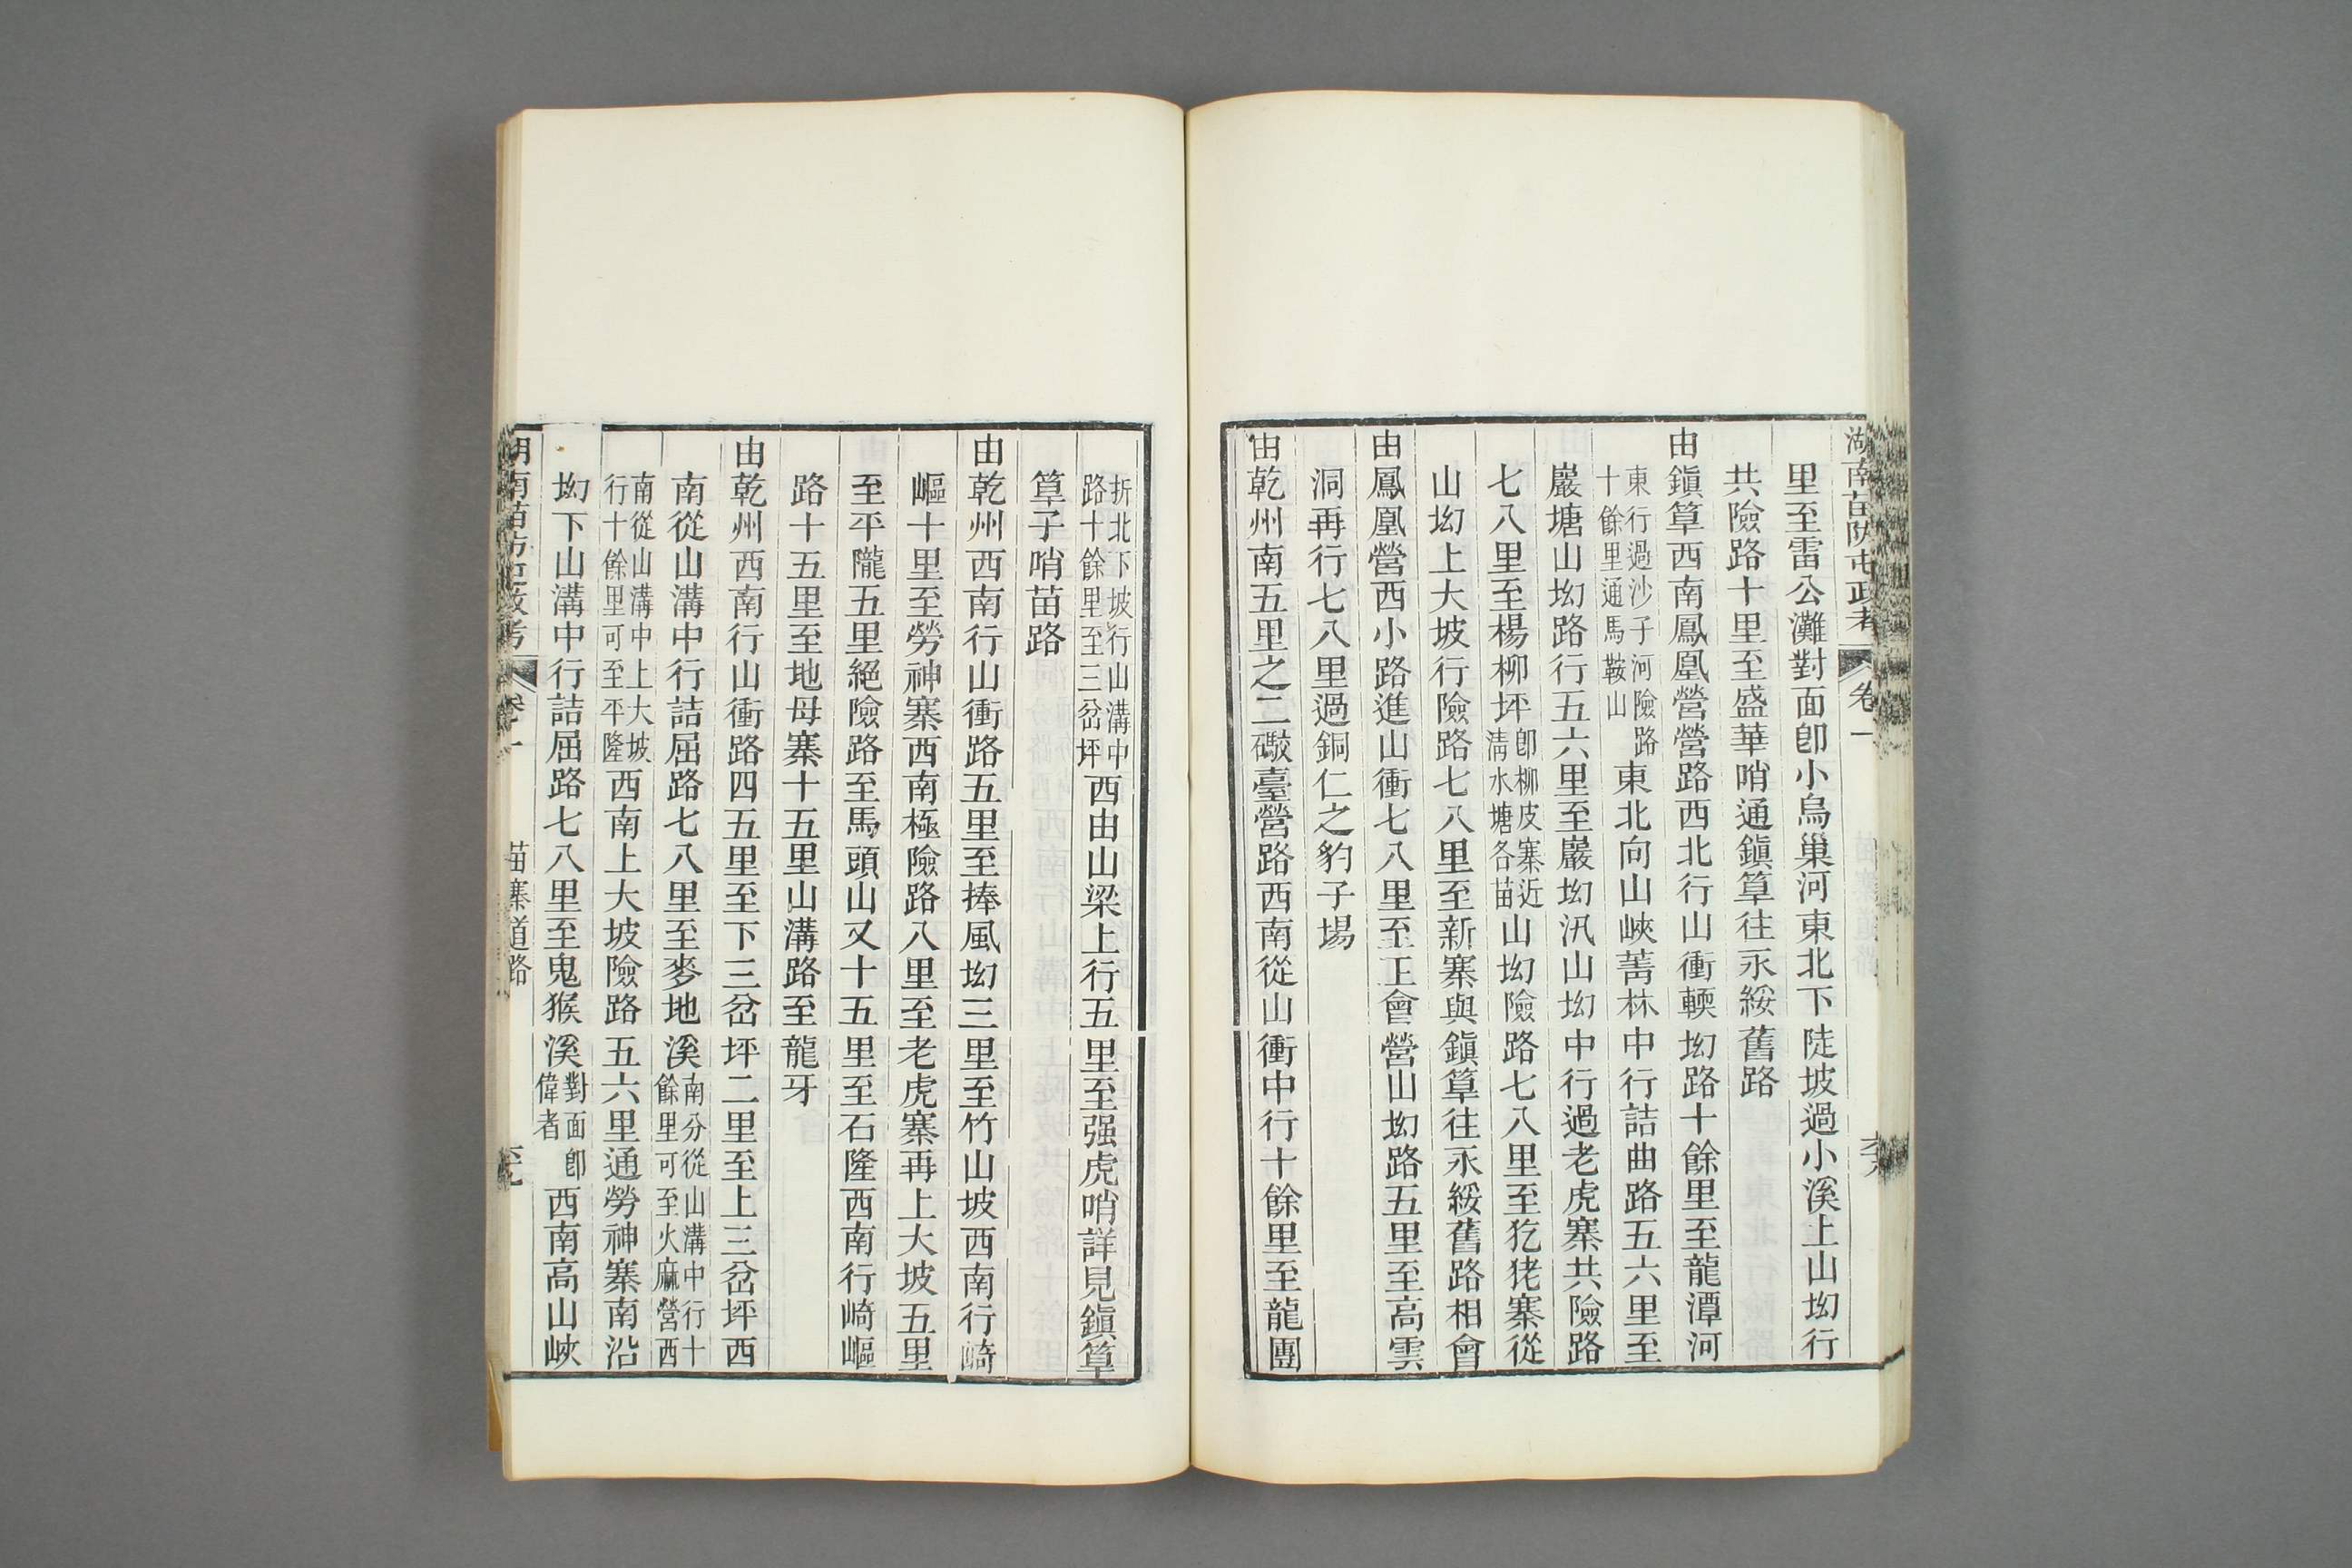 湖南苗防屯政考 卷一
里至雷公灘對面卽小烏巢河東北下陡坡過小溪上山㘭行
共險路十里至盛華哨通鎭筸往永綏舊路
由鎭筸西南鳳凰營營路西北行山衝輭㘭路十餘里至龍潭河
東行過沙子河險路
十餘里通馬鞍山
東北向山峽菁林中行詰曲路五六里至
巖塘山㘭路行五六里至巖㘭汛山㘭中行過老虎寨共險路
七八里至楊柳坪
卽柳皮寨近
淸水塘各苗
山㘭險路七八里至犵狫寨從
山㘭上大坡行險路七八里至新寨與鎭筸往永綏舊路相會
由鳳凰營西小路進山衝七八里至正會營山㘭路五里至高雲
洞再行七八里過銅仁之豹子場
由乾州南五里之二礮臺營路西南從山衝中行十餘里至龍團
折北下坡行山溝中
路十餘里至三岔坪
西由山梁上行五里至强虎哨詳見鎭筸
筸子哨苗路
由乾州西南行山衝路五里至捧風㘭三里至竹山坡西南行崎
嶇十里至勞神寨西南極險路八里至老虎寨再上大坡五里
至平隴五里絕險路至馬頭山又十五里至石隆西南行崎嶇
路十五里至地母寨十五里山溝路至龍牙
由乾州西南行山衝路四五里至下三岔坪二里至上三岔坪西
南從山溝中行詰屈路七八里至麥地溪
南分從山溝中行十
餘里可至火麻營西
南從山溝中上大坡
行十餘里可至平隆
西南上大坡險路五六里通勞神寨南沿
㘭下山溝中行詰屈路七八里至鬼猴溪
對面卽
偉者
西南高山峽
湖南苗防屯政考 卷一 苗寨道路